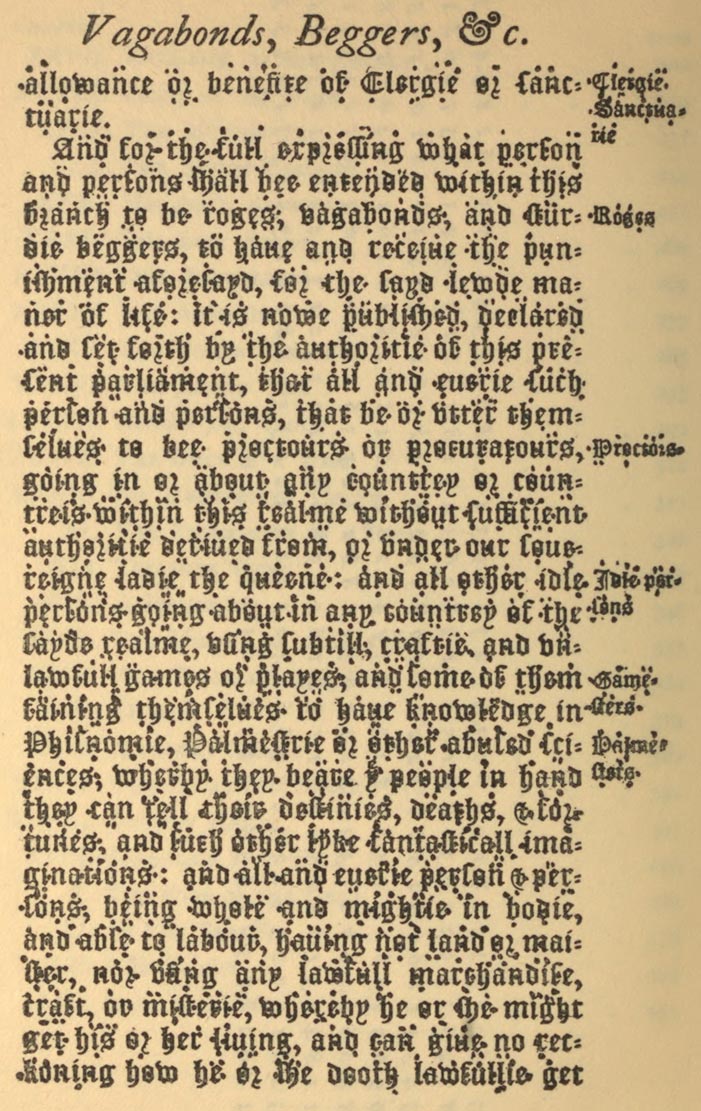 Vagabonds, Beggers, &c.
allowance or benefite of Clergie or sanc-
tuarie.
And for the full expressing what person
and persons shall bee entended within this
branch to be roges, vagabonds, and stur-
die beggers, to haue and receiue the pun-
ishment aforesayd, for the sayd lewde ma-
ner of life: it is nowe published, declared
and set forth by the authoritie of this pre-
sent parliament, that all and euerie such
person and persons, that be or vtter them-
selues to bee proctours or procuratours,
going in or about any countrey or coun-
treis within this realme without sufficient
authoritie deriued from, or vnder our soue-
reigne ladie the queene: and all other idle
persons going about in any countrey of the
sayde realme, vsing subtill, craftie, and vn-
lawfull games or playes, and some of them
faining themselues to haue knowledge in
Phisnomie, Palmestrie or other abused sci-
ences, wherby they beare yͤ people in hand
they can tell their destinies, deaths, & for-
tunes, and such other lyke fantasticall ima-
ginations: and all and euerie person & per-
sons, being whole and mightie in bodie,
and able to labour, hauing not land or mai-
ster, nor vsing any lawfull marchandise,
craft, or misterie, whereby he or she might
get his or her liuing, and can giue no rec-
koning how he or she dooth lawfullie get
Clergie.
Sanctua-
rie
Roges
Proctors
Idle per-
sons
Game-
sters.
Palme-
sters.